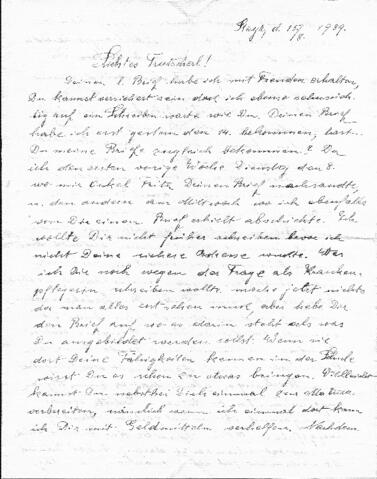 d. 15/8. 1939.
Liebstes Trutscherl!
Deinen l. Brief habe ich mit Freuden erhalten,
Du kannst versichert sein dass ich ebenso sehnsüch-
tig auf ein Schreiben warte wie Du. Deinen Brief
habe ich erst gestern den 14. bekommen, hast
Du meine Briefe zugleich bekommen? Da
ich den ersten vorige Woche Dienstag den 8.
wo mir Onkel Fritz Deinen Brief nachsandte,
u. den anderen am Mittwoch wo ich ebenfalls
von Dir einen Brief erhielt abschickte. Ich
wollte Dir nicht früher schreiben bevor ich
nicht Deine sichere Adresse wusste. Was
ich Dir noch wegen der Frage als Kranken-
pflegerin schreiben wollte, mache jetzt nichts
da man alles erst sehen muss, aber hebe Dir
den Brief auf wo es darin steht als was
Du ausgebildet werden sollst. Wenn sie
dort Deine Fähigkeiten kennen
wirst Du es schon zu etwas bringen. Vielleicht
kannst Du nebstbei Dich einmal zur Matura
vorbereiten, nämlich wenn ich einmal dort kann
ich Dir mit Geldmitteln verhelfen. Nachdem